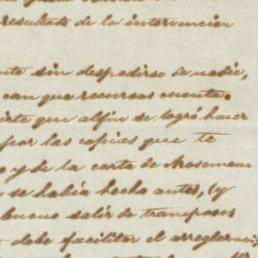 resultado de la intervencion
sin despedirse de nadie,
con que recursos cuenta.
que alfin se logró hacer
por las copias que te
y de la carta de Rosemen
se habia hecho antes, (y
bueno salir de transposos
debe facilitar el arreglo